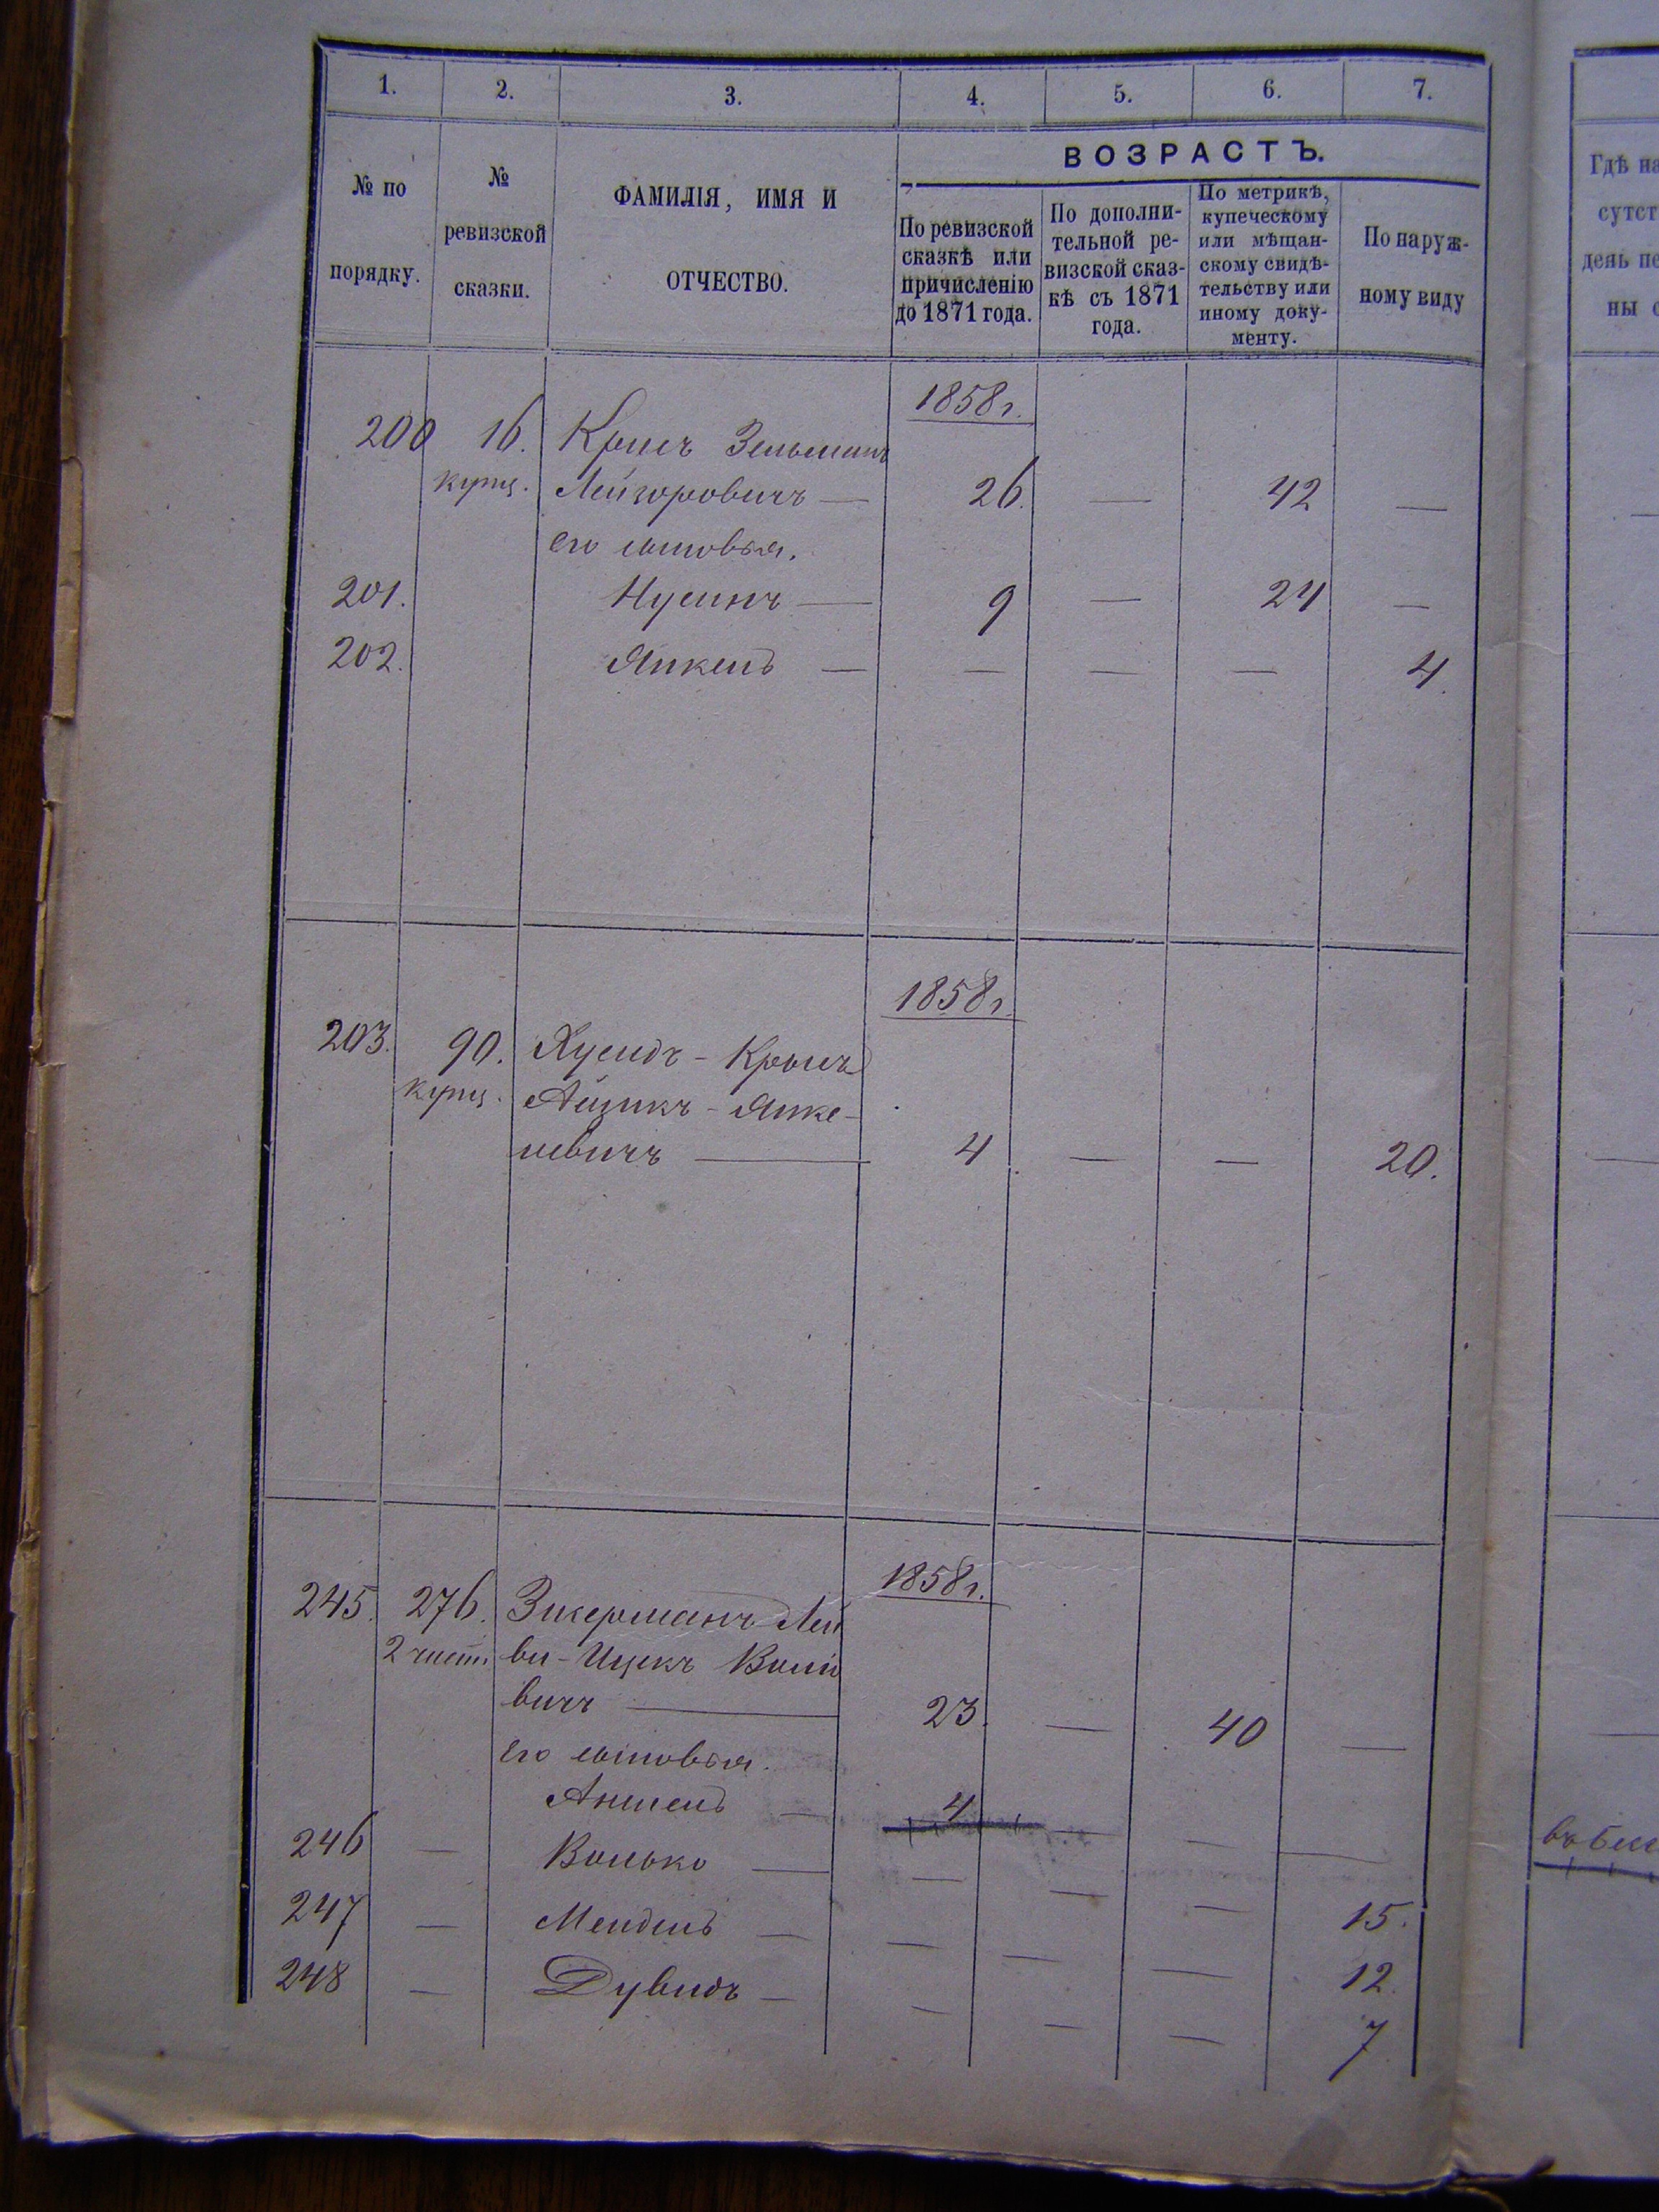 1.
2.
3.
4.
5.
6.
7.
№ по
порядку.
№
ревизской
сказки.
ФАМИЛІЯ, ИМЯ И
ОТЧЕСТВО.
ВОЗРАСТЪ.
По ревизской
сказкѣ или
причисленію
до 1871 года.
По дополни-
тельной ре-
визской сказ-
кѣ съ 1871
года.
По метрикѣ,
купеческому
или мѣщан-
скому свидѣ-
тельству или
иному доку-
менту.
По наруж-
ному виду
Гдѣ на
сутст
день пе
ны с
1858 г.
200 16. Крысъ Зельманъ
купц. Лейзоровичъ — 26. — 42 —
его сыновья.
201. Нусинъ — 9 — 24 —
202. Янкель — — — — 4.
1858 г.
203. 90. Хусидъ - Крысъ
купц. Айзикъ - Янке-
левичъ — 4. — — 20.
1858 г.
245. 276. Зикерманъ Лей
2 част. ви - Ицекъ Воль
вичъ — 23. — 40 —
Его сыновья.
Аншель — 4 — — —
246 — Волько — — — — 15.
247 — Мендель — — — — 12.
248 — Дувидъ — — — — 7